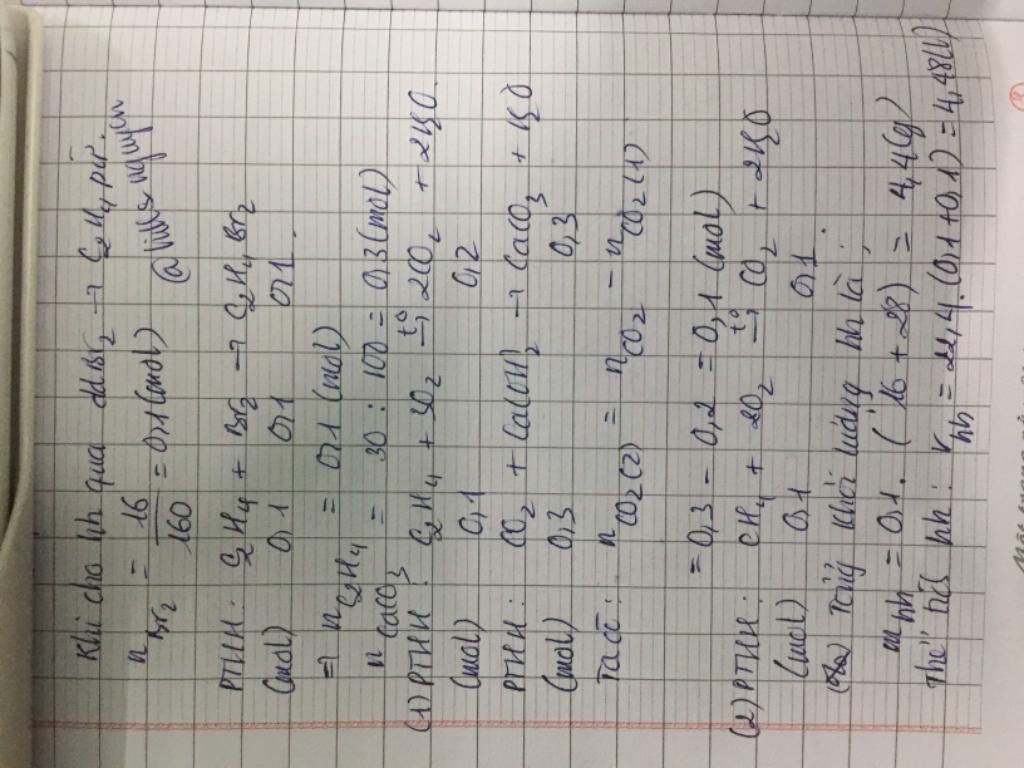 Khi cho hh qua ddBr2 → C2H4 pứ.
n Br2 = 16/160 = 0,1 (mol) @jillse nguyen
PTHH: C2H4 + Br2 → C2H4Br2
(mol) 0,1 0,1 0,1
=> n C2H4 = 0,1 (mol)
n CaCO3 = 30 : 100 = 0,3 (mol)
(1) PTHH: C2H4 + 3O2 t°→ 2CO2 + 2H2O
(mol) 0,1 0,2
PTHH: CO2 + Ca(OH)2 → CaCO3 + H2O
(mol) 0,3 0,3
Ta có: n CO2(2) = n CO2 - n CO2(1)
= 0,3 - 0,2 = 0,1 (mol)
(2) PTHH: CH4 + 2O2 t°→ CO2 + 2H2O
(mol) 0,1 0,1
Tổng khối lượng hh là:
m hh = 0,1. (16 + 28) = 4,4 (g)
Thể tích hh: V hh = 22,4. (0,1 + 0,1) = 4,48 (l)